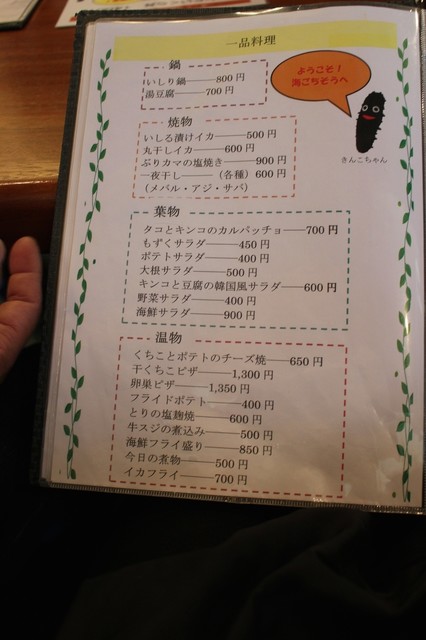 一品料理
鍋
いしり鍋―――800円
湯豆腐―――700円
ようこそ!
海ごちそうへ
きんこちゃん
焼物
いしる漬けイカ―――500円
丸干しイカ―――600円
ぶりカマの塩焼き―――900円
一夜干し―――(各種) 600円
(メバル・アジ・サバ)
葉物
タコとキンコのカルパッチョ―――700円
もずくサラダ―――450円
ポテトサラダ―――400円
大根サラダ―――500円
キンコと豆腐の韓国風サラダ―――600円
野菜サラダ―――400円
海鮮サラダ―――900円
温物
くちことポテトのチーズ焼―――650円
干くちこピザ―――1,300円
卵巣ピザ―――1,350円
フライドポテト―――400円
とりの塩麹焼―――600円
牛スジの煮込み―――500円
海鮮フライ盛り―――850円
今日の煮物―――500円
イカフライ―――700円